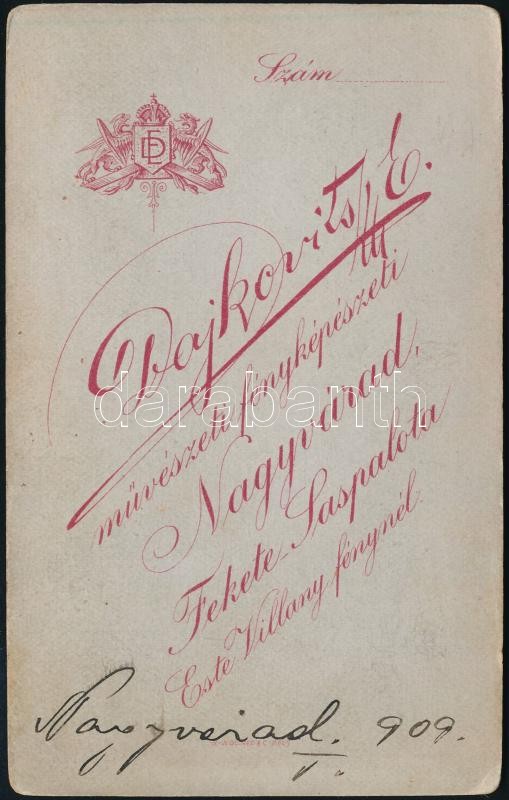 Szám
ED
Dajkovits E.
művészeti fényképészeti
Nagyvárad,
Fekete-Saspalota
Este Villany fénynél.
darabanth
Nagyvárad. 909.
I.